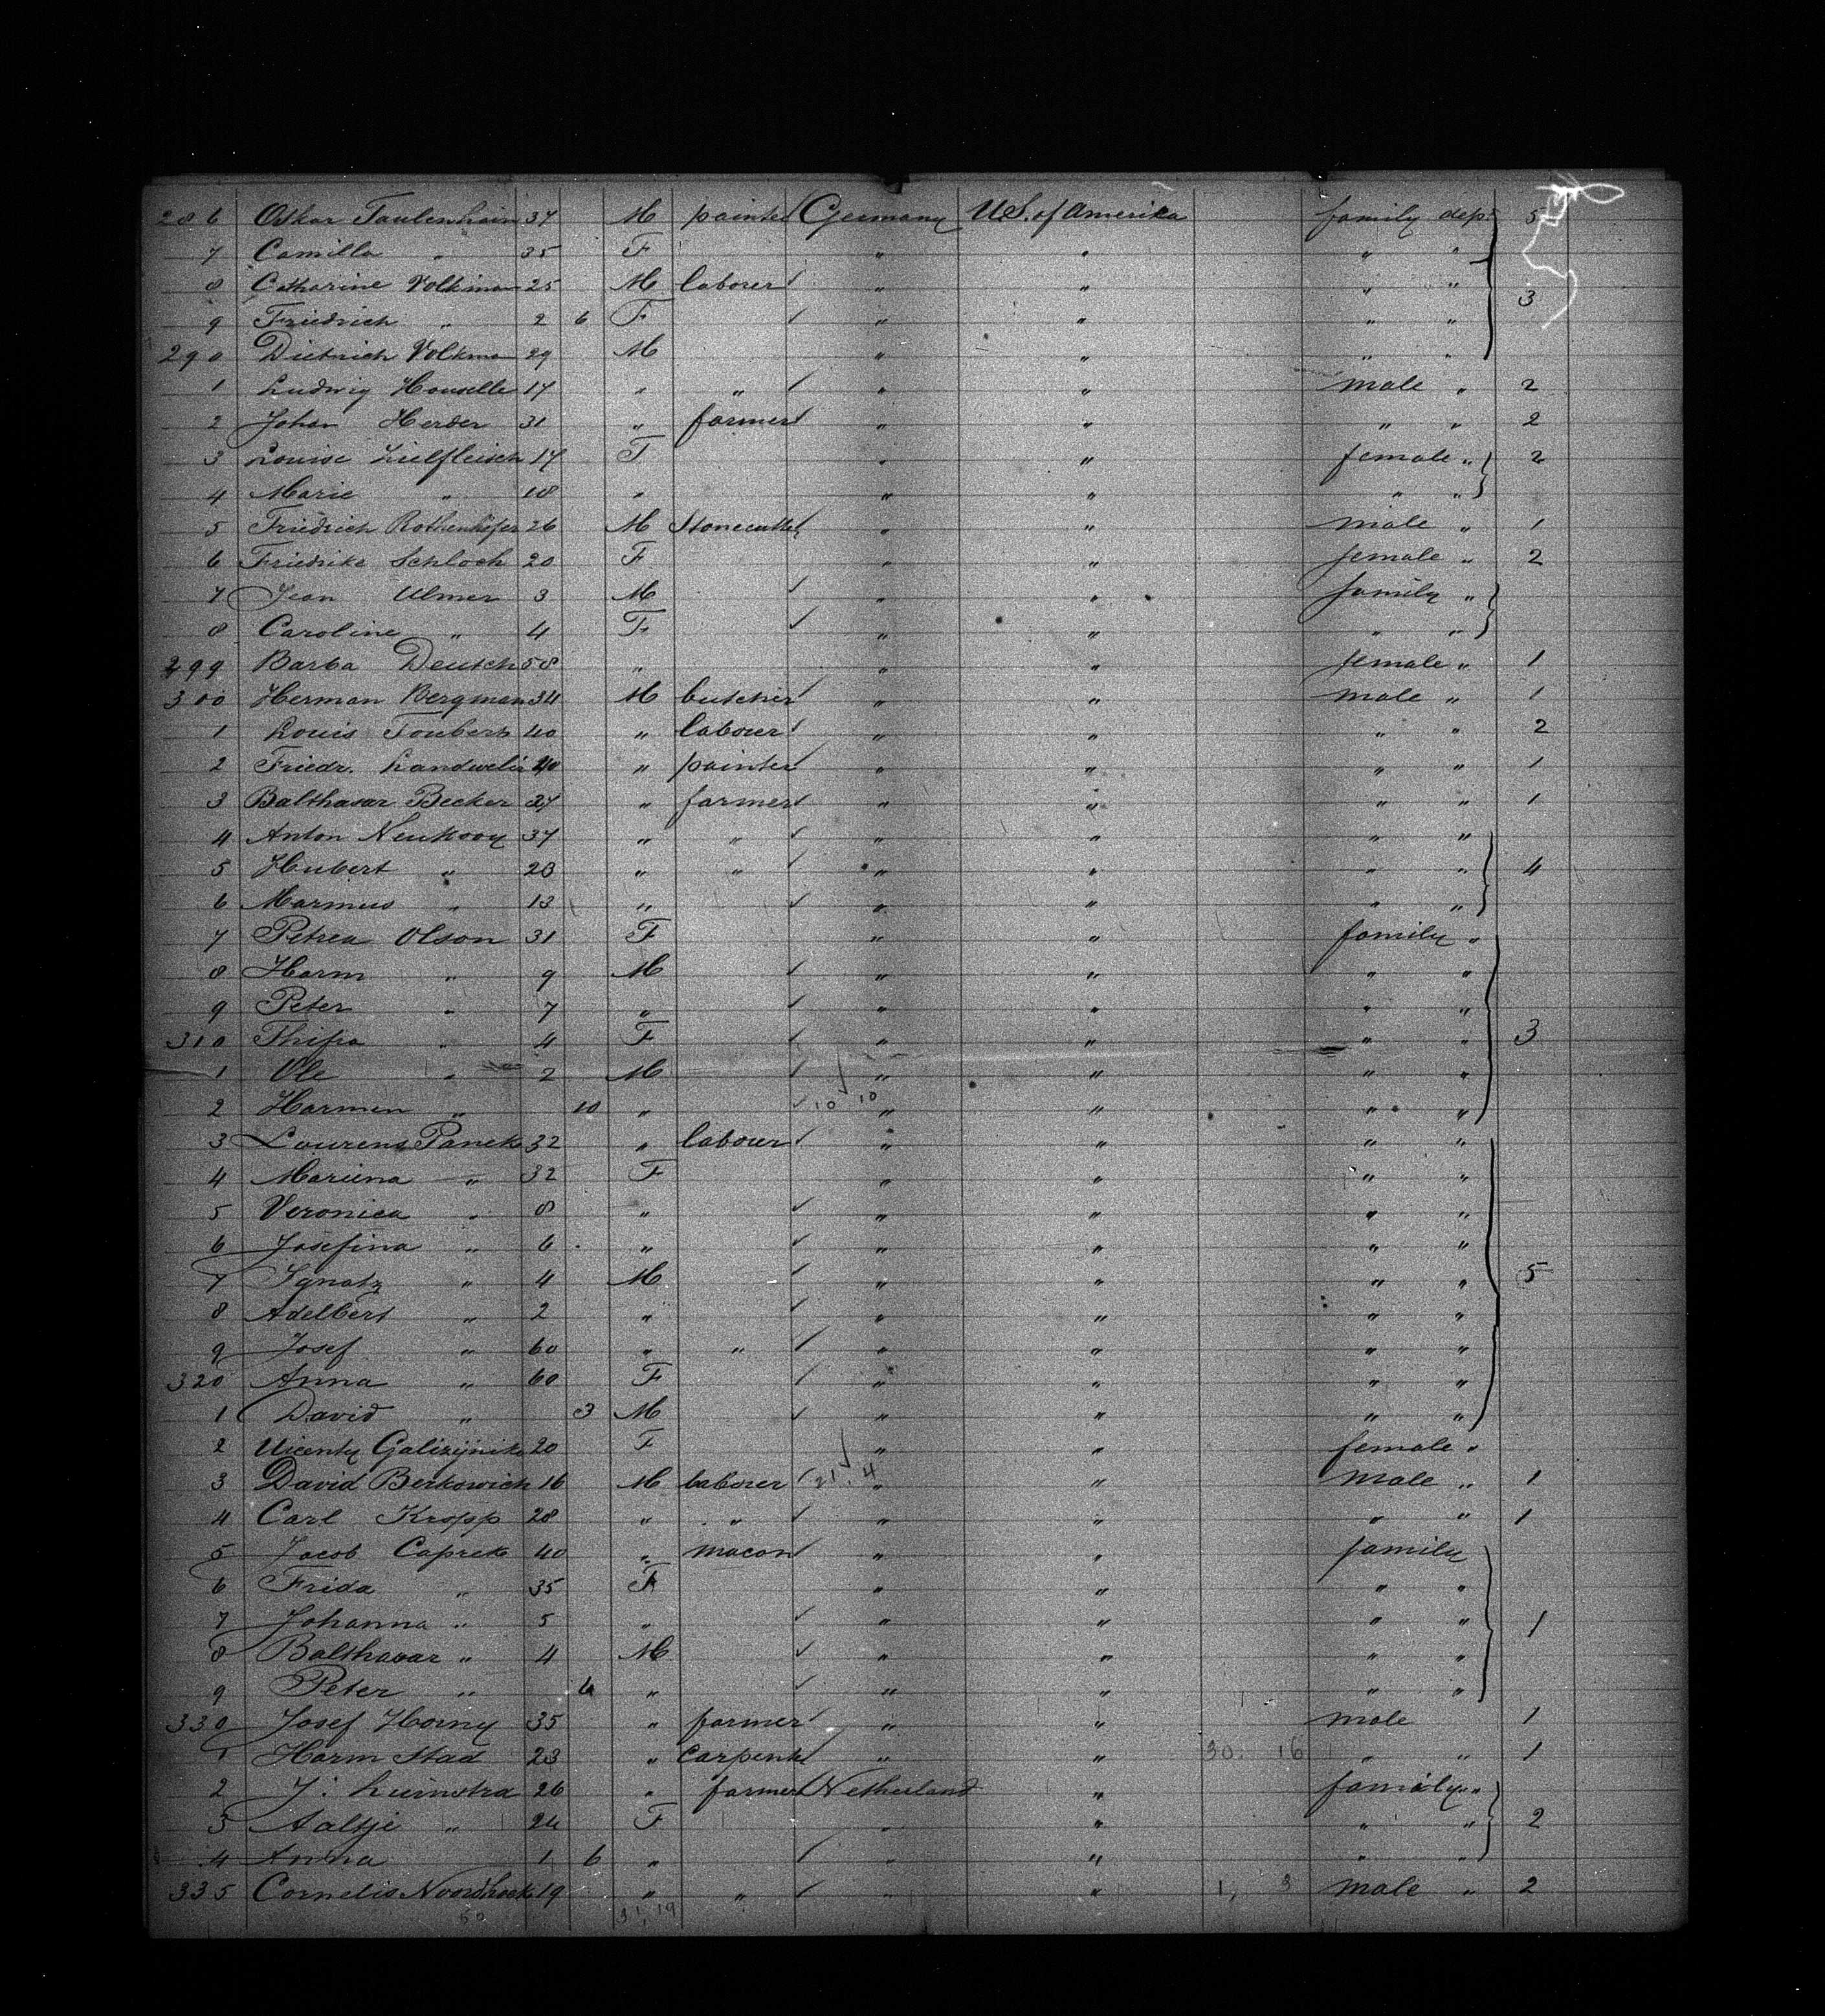 286 Oskar Taubenhain 37 M painter Germany U.S. of Amerika family dept 5
7 Camilla " 35 F " " " "
8 Catharine Volkman 25 M laborer " " " " 3
9 Friedrich " 2 6 F " " " "
290 Dietrich Volkma 29 M " " " "
1 Ludwig 17 " " " " male " 2
2 Johan Herder 31 " farmer " " " " 2
3 Louise Lielfleisch 17 F " " female " 2
4 Marie " 18 " " " " "
5 Friedrich Rothenhöfer 26 M Stonecutter " " male " 1
6 Friedrike Schloch 20 F " " female " 2
7 Jean Ulmer 3 M " " family "
8 Caroline " 4 F " " " "
299 Barba Deutsch 58 " " " female " 1
300 Herman Bergman 34 M butcher " " male " 1
1 Louis Toubert 40 " labourer " " " " 2
2 Friedr. 40 " painter " " " " 1
3 Balthasar Becker 37 " farmer " " " " 1
4 Anton 37 " " " " " "
5 Hubert " 23 " " " " " " 4
6 Marinus " 13 " " " " "
7 Petrea Olson 31 F " " family "
8 Harm " 9 M " " " "
9 Peter " 7 " " " " "
310 " 4 F " " " " 3
1 Ole " 2 M " " " "
2 Harmen " 10 " 10 10 " " " "
3 Lourens Panek 32 " labourer " " " "
4 " 32 F " " " "
5 Veronica " 8 " " " " "
6 Josefina " 6 " " " " "
7 Ignatz " 4 M " " " " 5
8 Adelbert " 2 " " " " "
9 Josef " 60 " " " " " "
320 Anna " 60 F " " " "
1 David " 3 M " " " "
2 20 F " " female "
3 David Berkowich 16 M laborer 21, 4 " " male " 1
4 Carl Kropp 28 " " " " " " 1
5 Jacob Caprek 40 " macon " " family
6 Frida " 35 F " " " "
7 Johanna " 5 " " " " " 1
8 Balthasar " 4 M " " " "
9 Peter " 6 " " " " "
330 Josef Horny 35 " farmer " " male 1
1 Harm Stad 23 " carpenter " " 30. 16 " " 1
2 J. Luimstra 26 " farmer Netherland " family "
3 Aaltje " 24 F " " " " 2
4 Anna 1 6 " " " " "
335 Cornelis Noordhoek 19 " " " " 1, 3 male " 2
60 31, 19